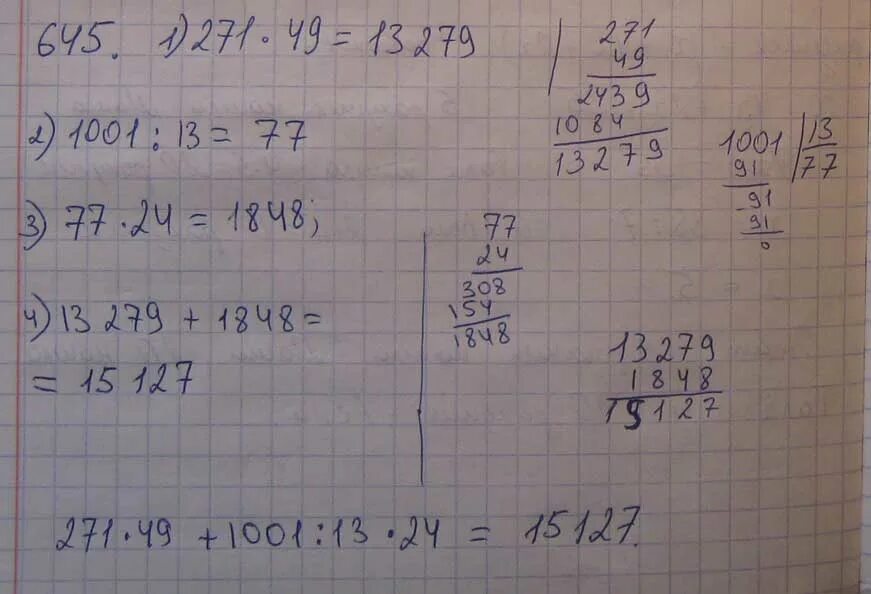 645. 1) 271 · 49 = 13 279
271
49
2439
1084
13279
2) 1001 : 13 = 77
1001 | 13
91 77
91
91
0
3) 77 · 24 = 1848;
77
24
308
154
1848
4) 13 279 + 1848 =
= 15 127
13279
1848
15127
271 · 49 + 1001 : 13 · 24 = 15127.